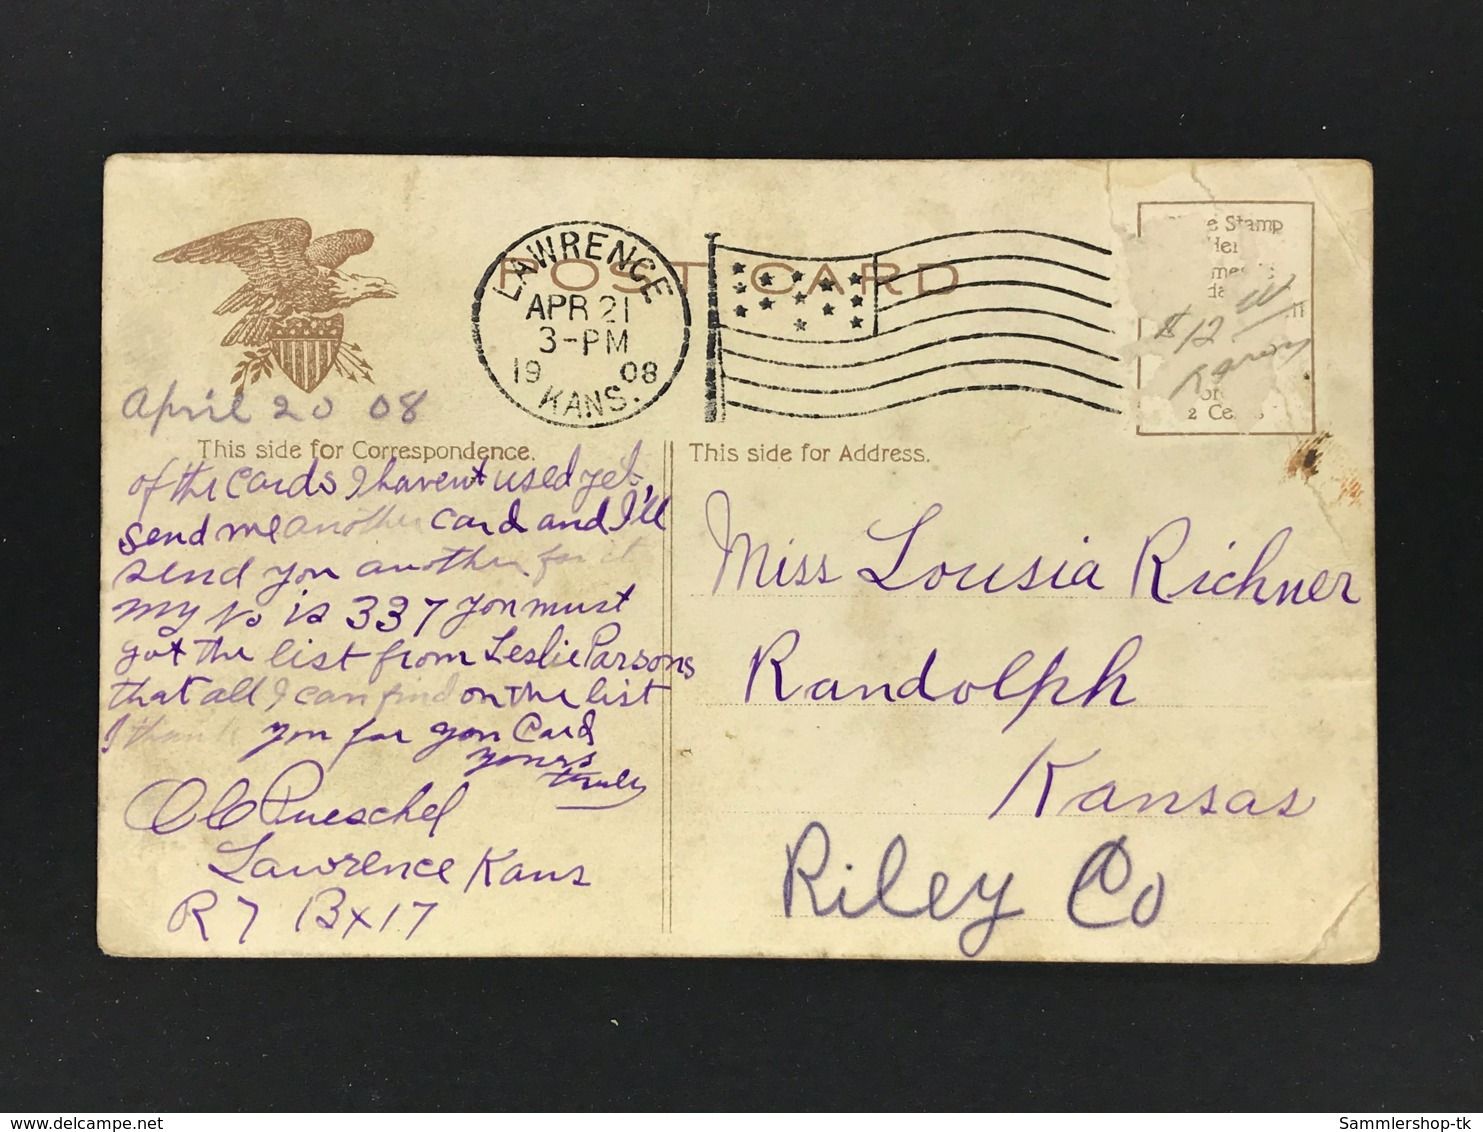 POST CARD
LAWRENCE
APR 21
3-PM
19 08
KANS.
e Stamp
Her
mes
da
n
or
2 Ce s
$12
April 20 08
This side for Correspondence.
of the cards I havent used yet,
send me another card and I'll
send you another for it
my No is 337 you must
got the list from Leslie Parsons
that all I can find on the list
I thank you for you Card
yours
truly
Pueschel
Lawrence Kans
R 7 Bx 17
This side for Address.
Miss Lousia Richner
Randolph
Kansas
Riley Co
Sammlershop-tk